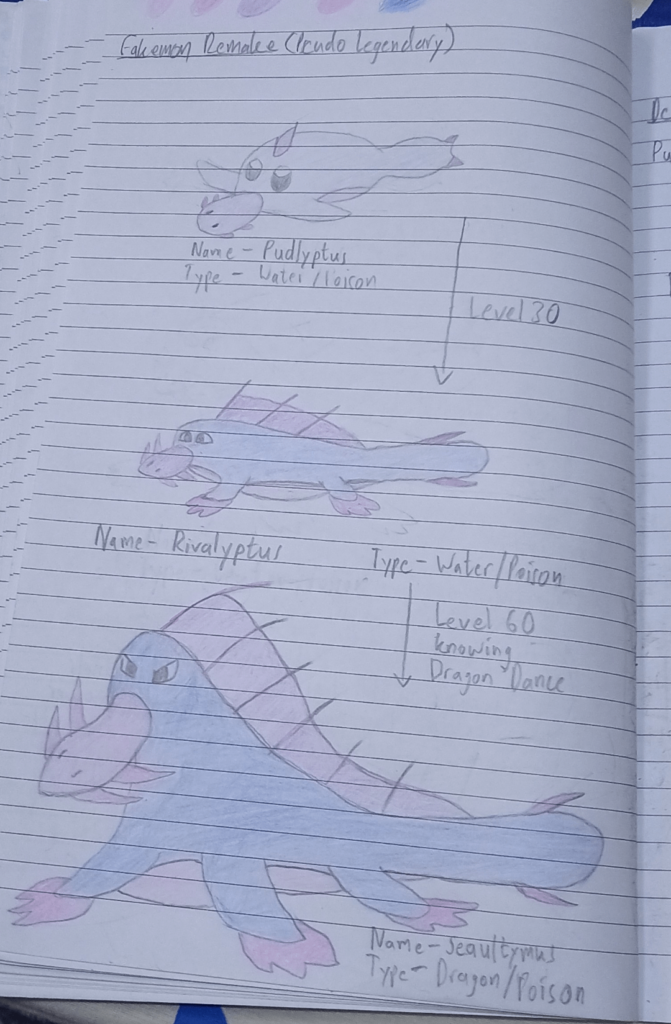 Fakemon Remake (Psudo Legendary)
Name - Pudlyptus
Type - Water/Poison
Level 30
Name - Rivalyptus
Type - Water/Poison
Level 60
knowing
Dragon Dance
Name - Seaultymus
Type - Dragon/Poison
Pu